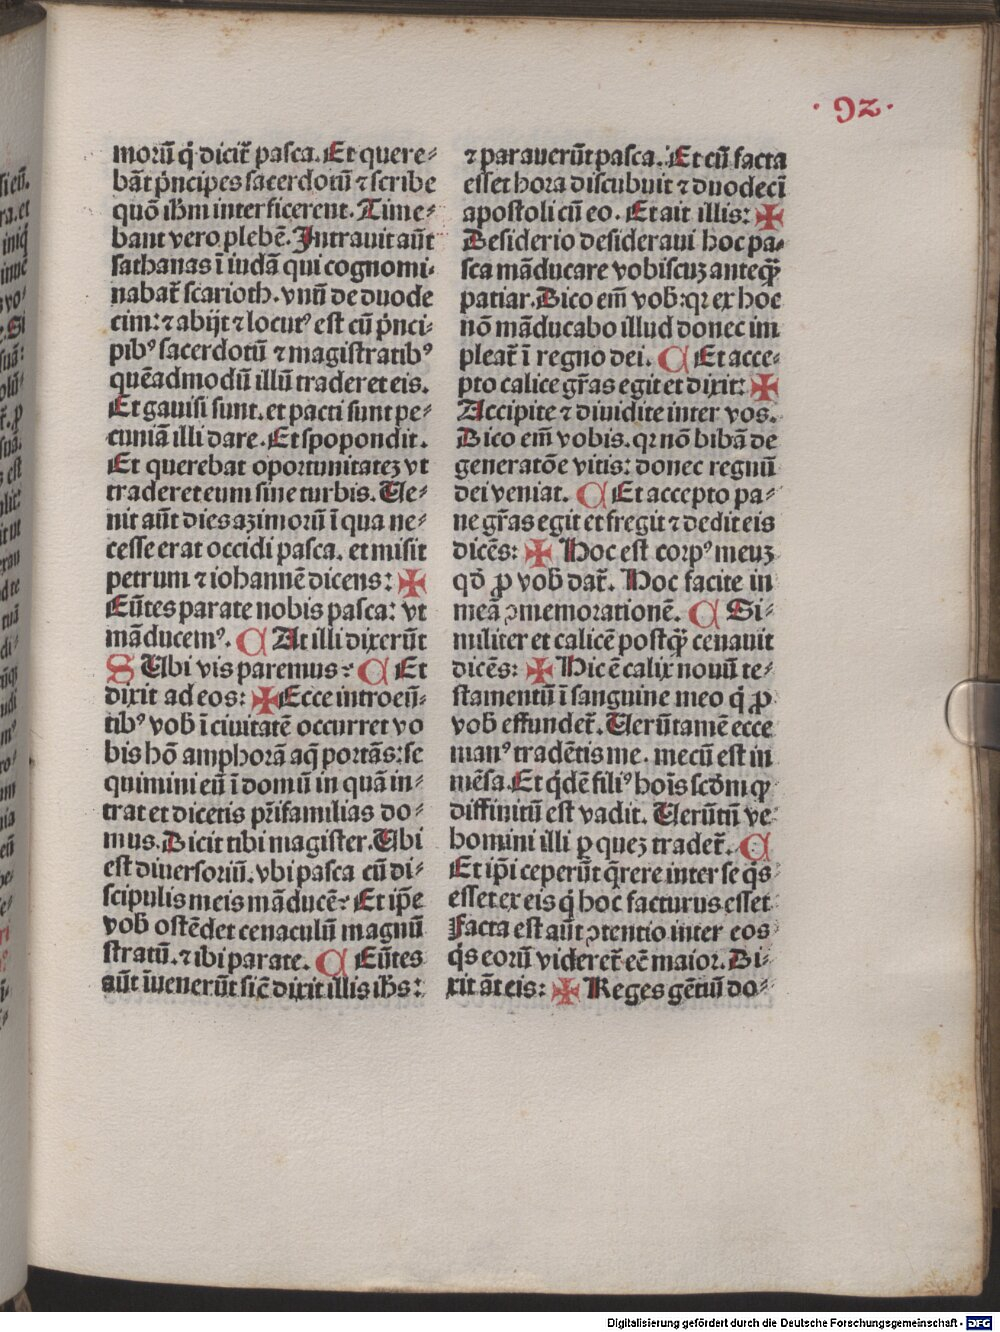 ·92·
morū q̇ dicit᷑ pasca. Et quere⸗
bāt pͥncipes sacerdotū ⁊ scribe
quō ihm̄ interficerent. Time⸗
bant vero plebē. Intrauit aūt
sathanas ī iudā qui cognomi⸗
nabat᷑ scarioth. vnū de duode
cim: ⁊ abijt ⁊ locutꝰ est cū pͥnci⸗
pibꝰ sacerdotū ⁊ magistratibꝰ
quēadmodū illū traderet eis.
Et gauisi sunt. et pacti sunt pe⸗
cuniā illi dare. Et spopondit.
Et querebat oportunitateʒ vt
traderet eum sine turbis. Ue⸗
nit aūt dies azimorū ī qua ne⸗
cesse erat occidi pasca. et misit
petrum ⁊ iohannē dicens: ✠
Eūtes parate nobis pasca: vt
māducemꝰ. C At illi dixerūt
S Ubi vis paremus? C Et
dixit ad eos: ✠ Ecce introeū⸗
tibꝰ vob̄ ī ciuitatē occurret vo
bis hō amphorā aq̄ portās: se
quimini eū ī domū in quā in⸗
trat et dicetis pr̄ifamilias do⸗
mus. Dicit tibi magister. Ubi
est diuersoriū. vbi pasca cū di⸗
scipulis meis māducē? Et ip̄e
vob̄ ostēdet cenaculū magnū
stratū. ⁊ ibi parate. C Eūtes
aūt īuenerūt sic̄ dixit illis ihs̄:
⁊ parauerūt pasca. Et cū facta
esset hora discubuit ⁊ duodecī
apostoli cū eo. Et ait illis: ✠
Desiderio desideraui hoc pa⸗
sca māducare vobiscuʒ anteq̄ꝫ
patiar. Dico em̄ vob̄: qꝛ ex hoc
nō māducabo illud donec im
pleat᷑ ī regno dei. C Et acce⸗
pto calice gr̄as egit et dixit: ✠
Accipite ⁊ diuidite inter vos.
Dico em̄ vobis. qꝛ nō bibā de
generatōe vitis: donec regnū
dei veniat. C Et accepto pa⸗
ne gr̄as egit et fregit ⁊ dedit eis
dicēs: ✠ Hoc est corpꝰ meuʒ
qd̄ ꝓ vob̄ dat᷑. Hoc facite in
meā ꝯmemorationē. C Si⸗
militer et calicē postq̄ꝫ cenauit
dicēs: ✠ Hic ē calix nouū te⸗
stamentū ī sanguine meo q̇ ꝓ
vob̄ effundet᷑. Uerūtamē ecce
manꝰ tradētis me. mecū est in
mēsa. Et qͥdē filiꝰ hoīs scd̄m qͦ
diffinitū est vadit. Uerūtn̄ ve
homini illi ꝑ queʒ tradet᷑. C
Et ip̄i ceperūt q̄rere inter se qͥs
esset ex eis q̇ hoc facturus esset
Facta est aūt ꝯtentio inter eos
qͥs eorū videret᷑ eē maior. Di⸗
xit āt eis: ✠ Reges gētiū do⸗
Digitalisierung gefördert durch die Deutsche Forschungsgemeinschaft - DFG